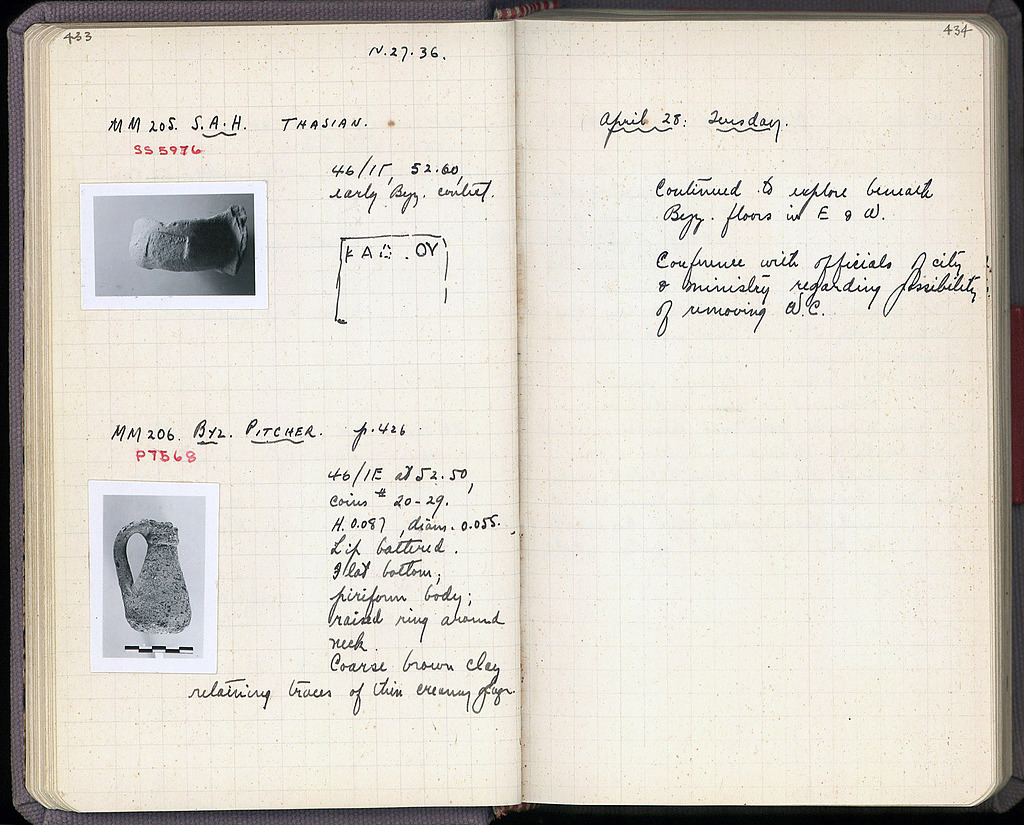 433
IV.27.36.
MM 205. S.A.H. THASIAN.
SS 5976
46/ΙΓ, 52.60,
early Byz. context.
Κ Α Ο . ΟΥ
MM 206. BYZ. PITCHER. p.426.
P7568
46/ΙΕ at 52.50,
coins # 20-29.
H. 0.087, diam. 0.055.
Lip battered.
Flat bottom;
piriform body;
raised ring around
neck.
Coarse brown clay
retaining traces of thin creamy glaze.
434
April 28: Tuesday.
Continued to explore beneath
Byz. floors in E & W.
Conference with officials of city
& ministry regarding possibility
of removing W.C.